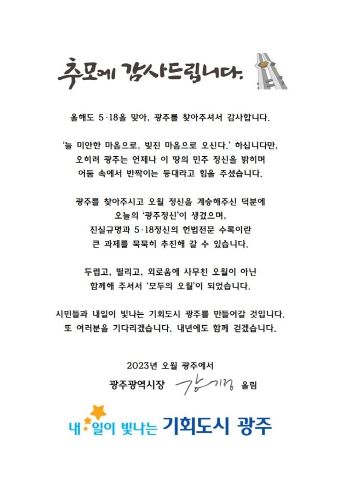 추모에 감사드립니다.
올해도 5·18을 맞아, 광주를 찾아주셔서 감사합니다.
'늘 미안한 마음으로, 빚진 마음으로 오신다.' 하십니다만,
오히려 광주는 언제나 이 땅의 민주 정신을 밝히며
어둠 속에서 반짝이는 등대라고 힘을 주셨습니다.
광주를 찾아주시고 오월 정신을 계승해주신 덕분에
오늘의 '광주정신'이 생겼으며,
진실규명과 5·18정신의 헌법전문 수록이란
큰 과제를 묵묵히 추진해 갈 수 있습니다.
두렵고, 떨리고, 외로움에 사무친 오월이 아닌
함께해 주셔서 '모두의 오월'이 되었습니다.
시민들과 내일이 빛나는 기회도시 광주를 만들어갈 것입니다.
또 여러분을 기다리겠습니다. 내년에도 함께 걷겠습니다.
2023년 오월 광주에서
광주광역시장 강기정 올림
내★일이 빛나는 기회도시 광주